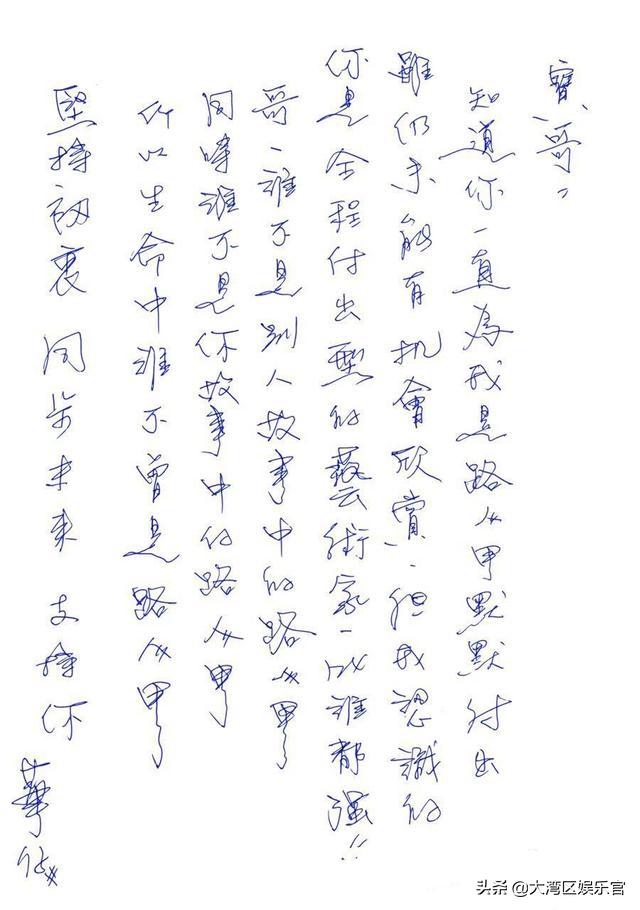 寶哥:
知道你一直為我是路人甲默默付出
雖仍未能有机會欣賞,但我認識的
你是全程付出型的藝術家,比誰都强!!
哥,誰不是別人故事中的路人甲
同時誰不是你故事中的路人甲
所以生命中誰不曾是路人甲
堅持初衷 同步未來 支持你
華仔
头条 @大湾区娱乐官